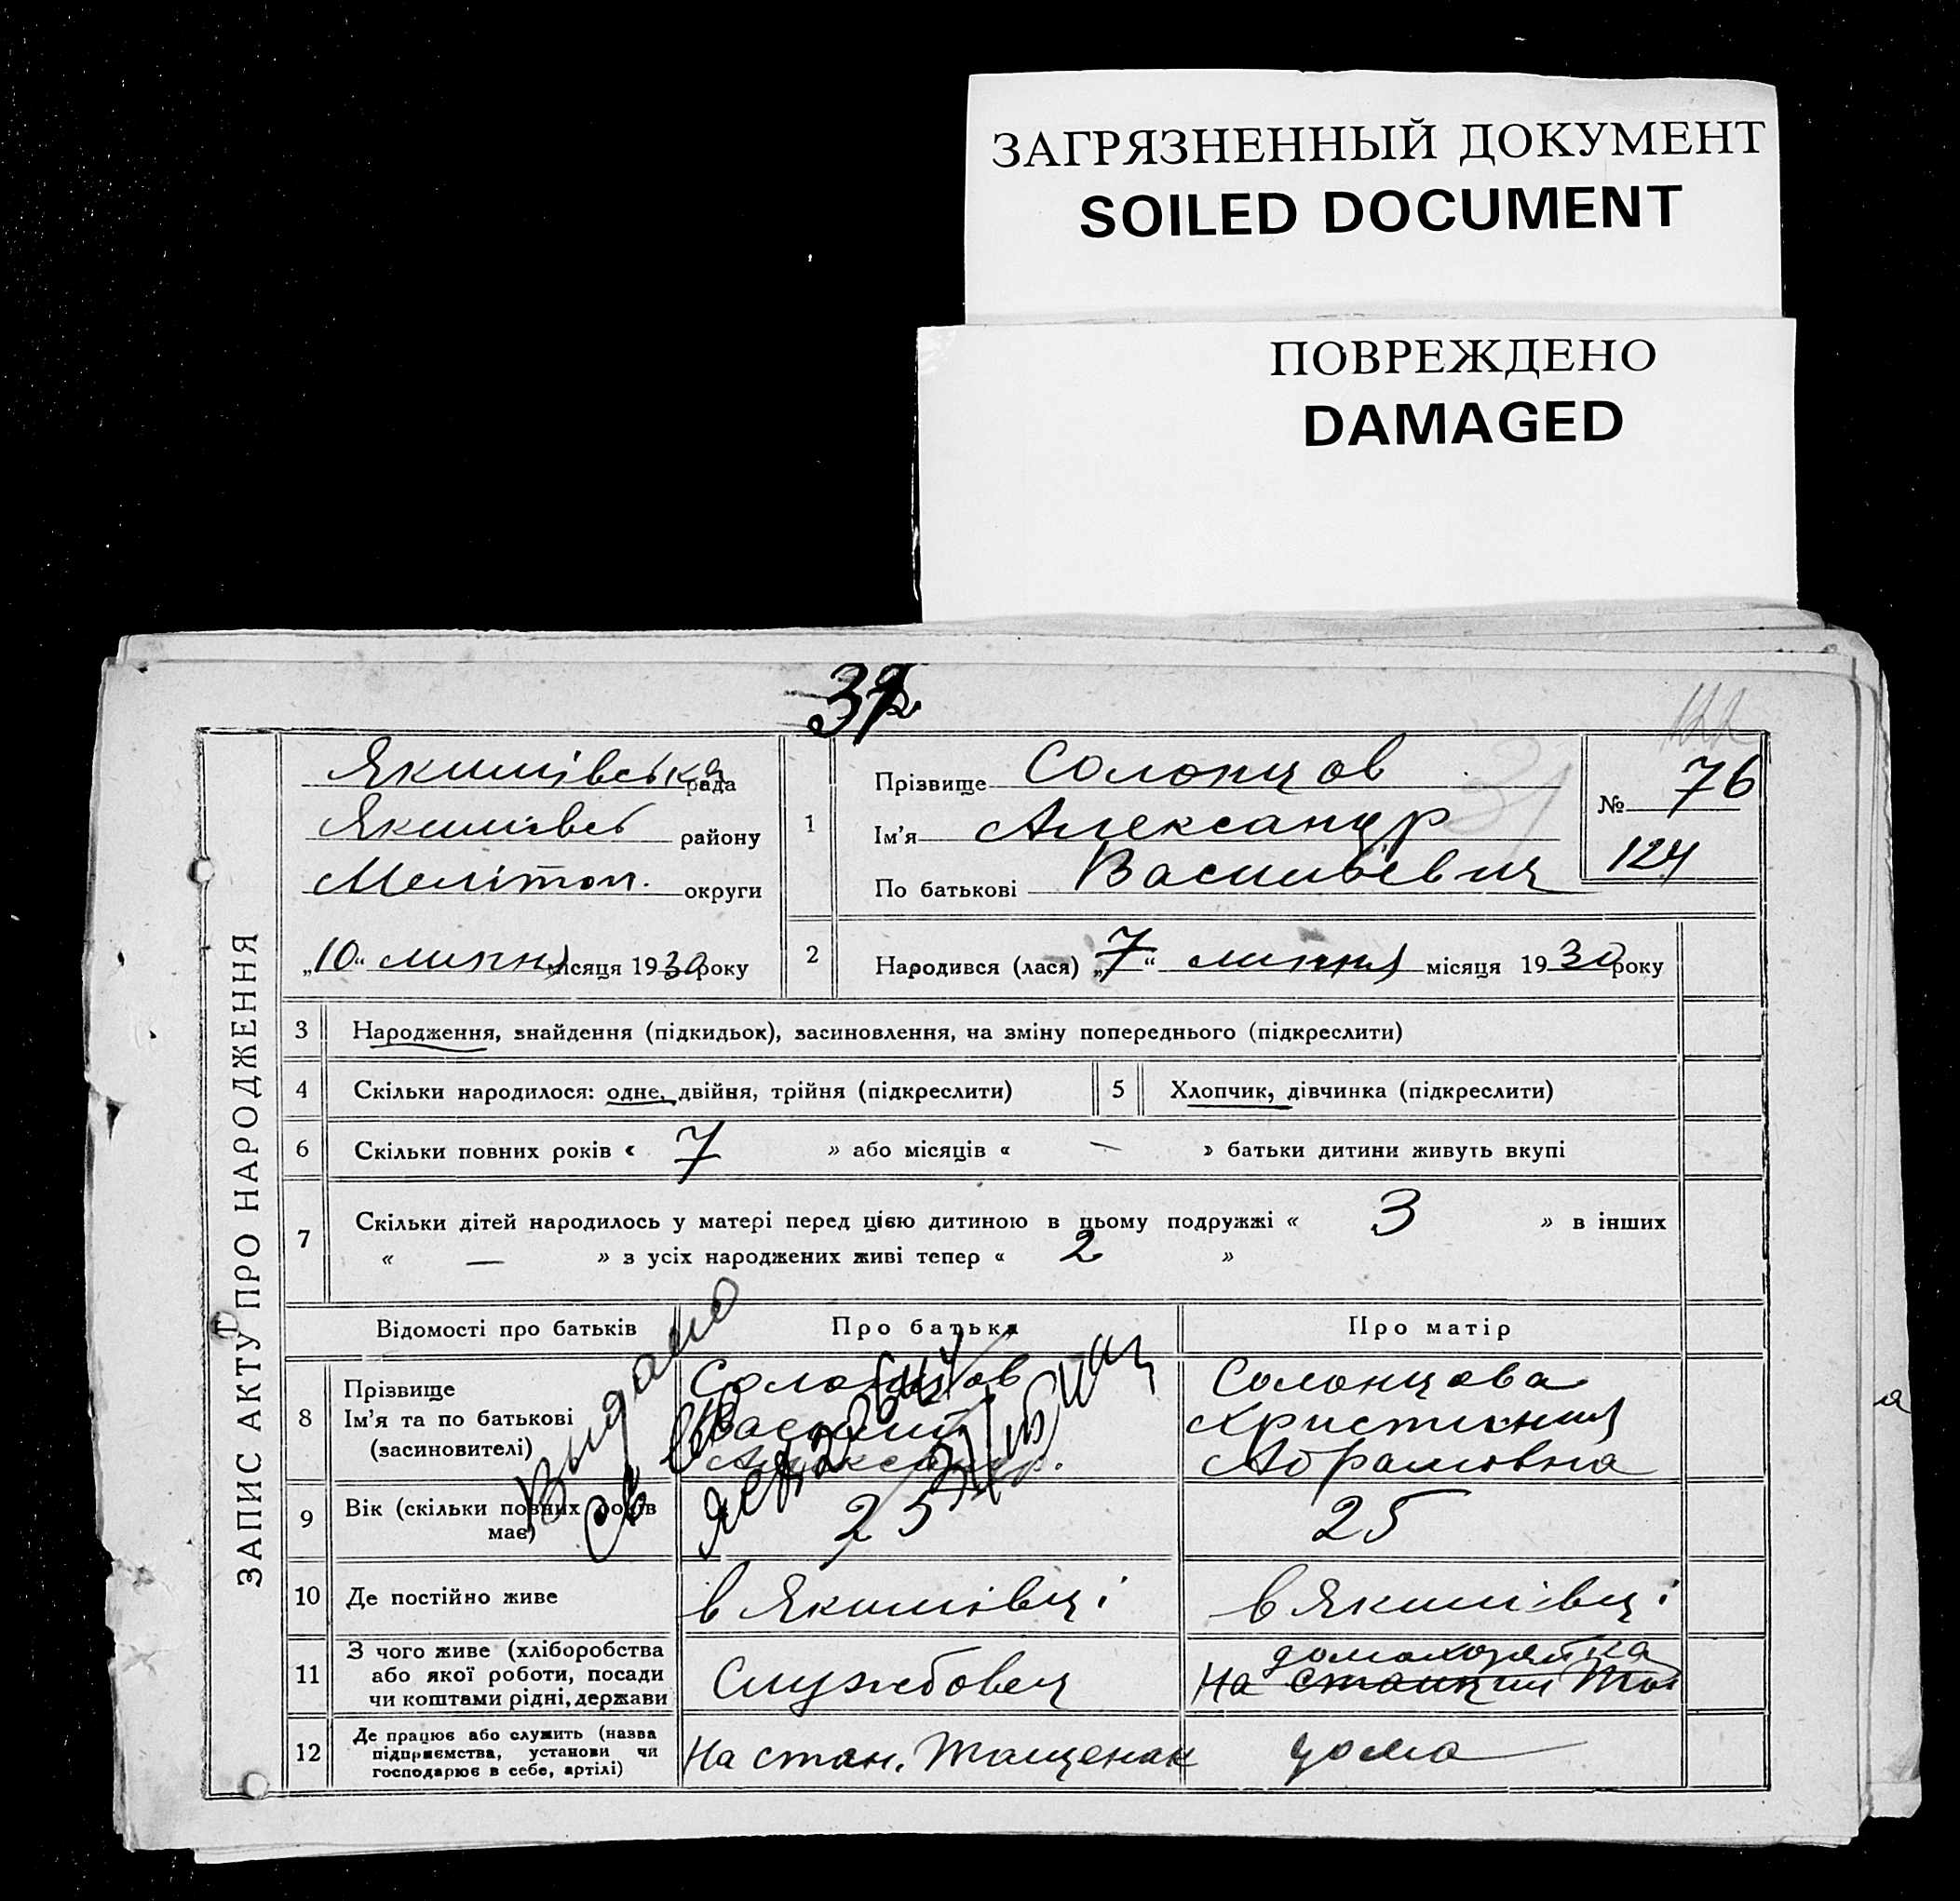 ЗАГРЯЗНЕННЫЙ ДОКУМЕНТ
SOILED DOCUMENT
ПОВРЕЖДЕНО
DAMAGED
ЗАПИС АКТУ ПРО НАРОДЖЕННЯ
Якимівська рада
Якимівськ району
Мелітоп. округи
„10“ липня місяця 1930 року
1
Прізвище Солонцов
Ім'я Александр
По батькові Васильевич
31
№ 76
124
2
Народився (лася) „7“ липня місяця 1930 року
3 Народження, знайдення (підкидьок), засиновлення, на зміну попереднього (підкреслити)
4 Скільки народилося: одне, двійня, трійня (підкреслити)
5 Хлопчик, дівчинка (підкреслити)
6 Скільки повних років « 7 » або місяців « — » батьки дитини живуть вкупі
7 Скільки дітей народилось у матері перед цією дитиною в цьому подружжі « 3 » в інших
« — » з усіх народжених живі тепер « 2 »
Відомості про батьків
Про батька
Про матір
8 Прізвище
Ім'я та по батькові
(засиновителі)
Солонцов
Василий
Александр.
Солонцова
Христиния
Абрамовна
Выдано
9 Вік (скільки повних років
має)
25
25
10 Де постійно живе
в Якимівці
в Якимівці
11 З чого живе (хліборобства
або якої роботи, посади
чи коштами рідні, держави
Службовец
домохозяйка
На станции
12 Де працює або служить (назва
підприємства, установи чи
господарює в себе, артілі)
На стан. Тащенак
дома